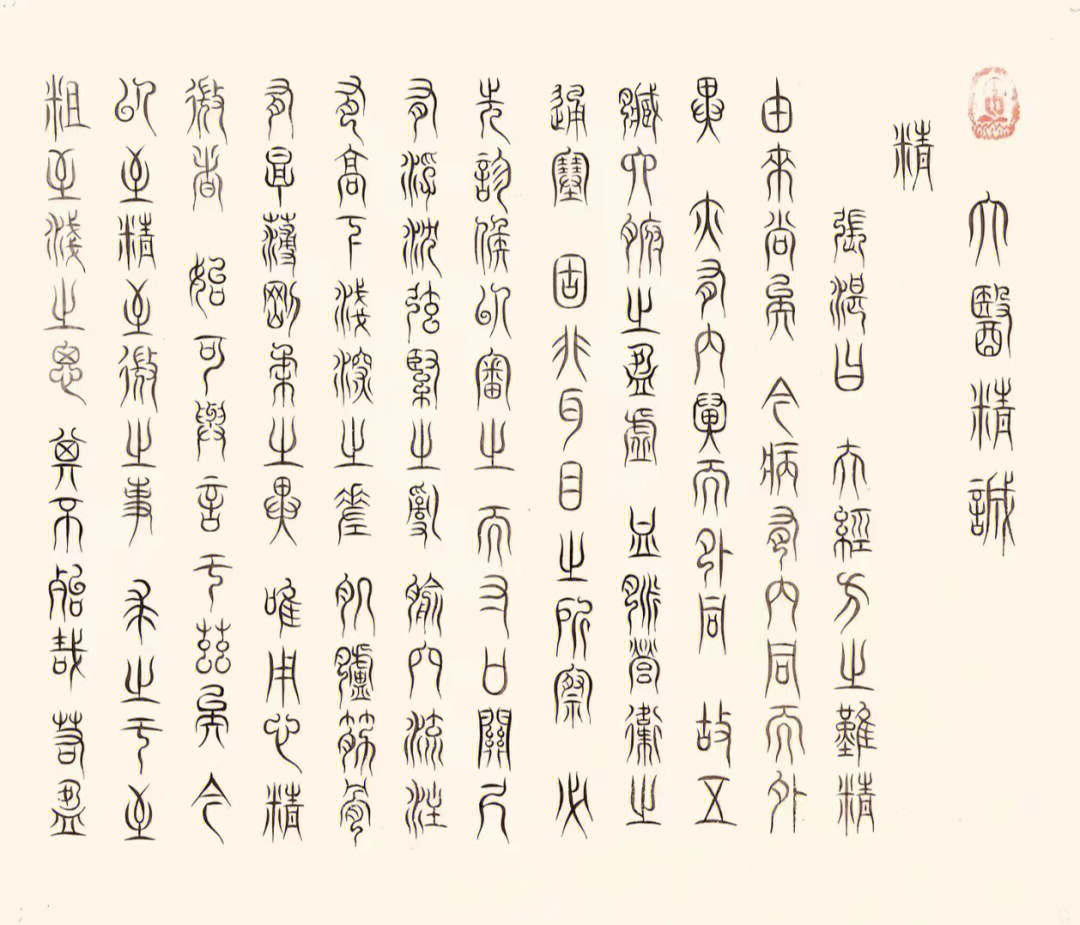 大醫精誠
精
張湛曰 夫經方之難精
由來尚矣 今病有內同而外
異 亦有內異而外同 故五
臟六腑之盈虛 血脈營衛之
通塞 固非耳目之所察 必
先診候以審之 而寸口關尺
有浮沈弦緊之亂 腧穴流注
有高下淺深之差 肌膚筋骨
有厚薄剛柔之異 唯用心精
微者 始可與言于茲矣 今
以至精至微之事 求之于至
粗至淺之思 其不殆哉 若盈